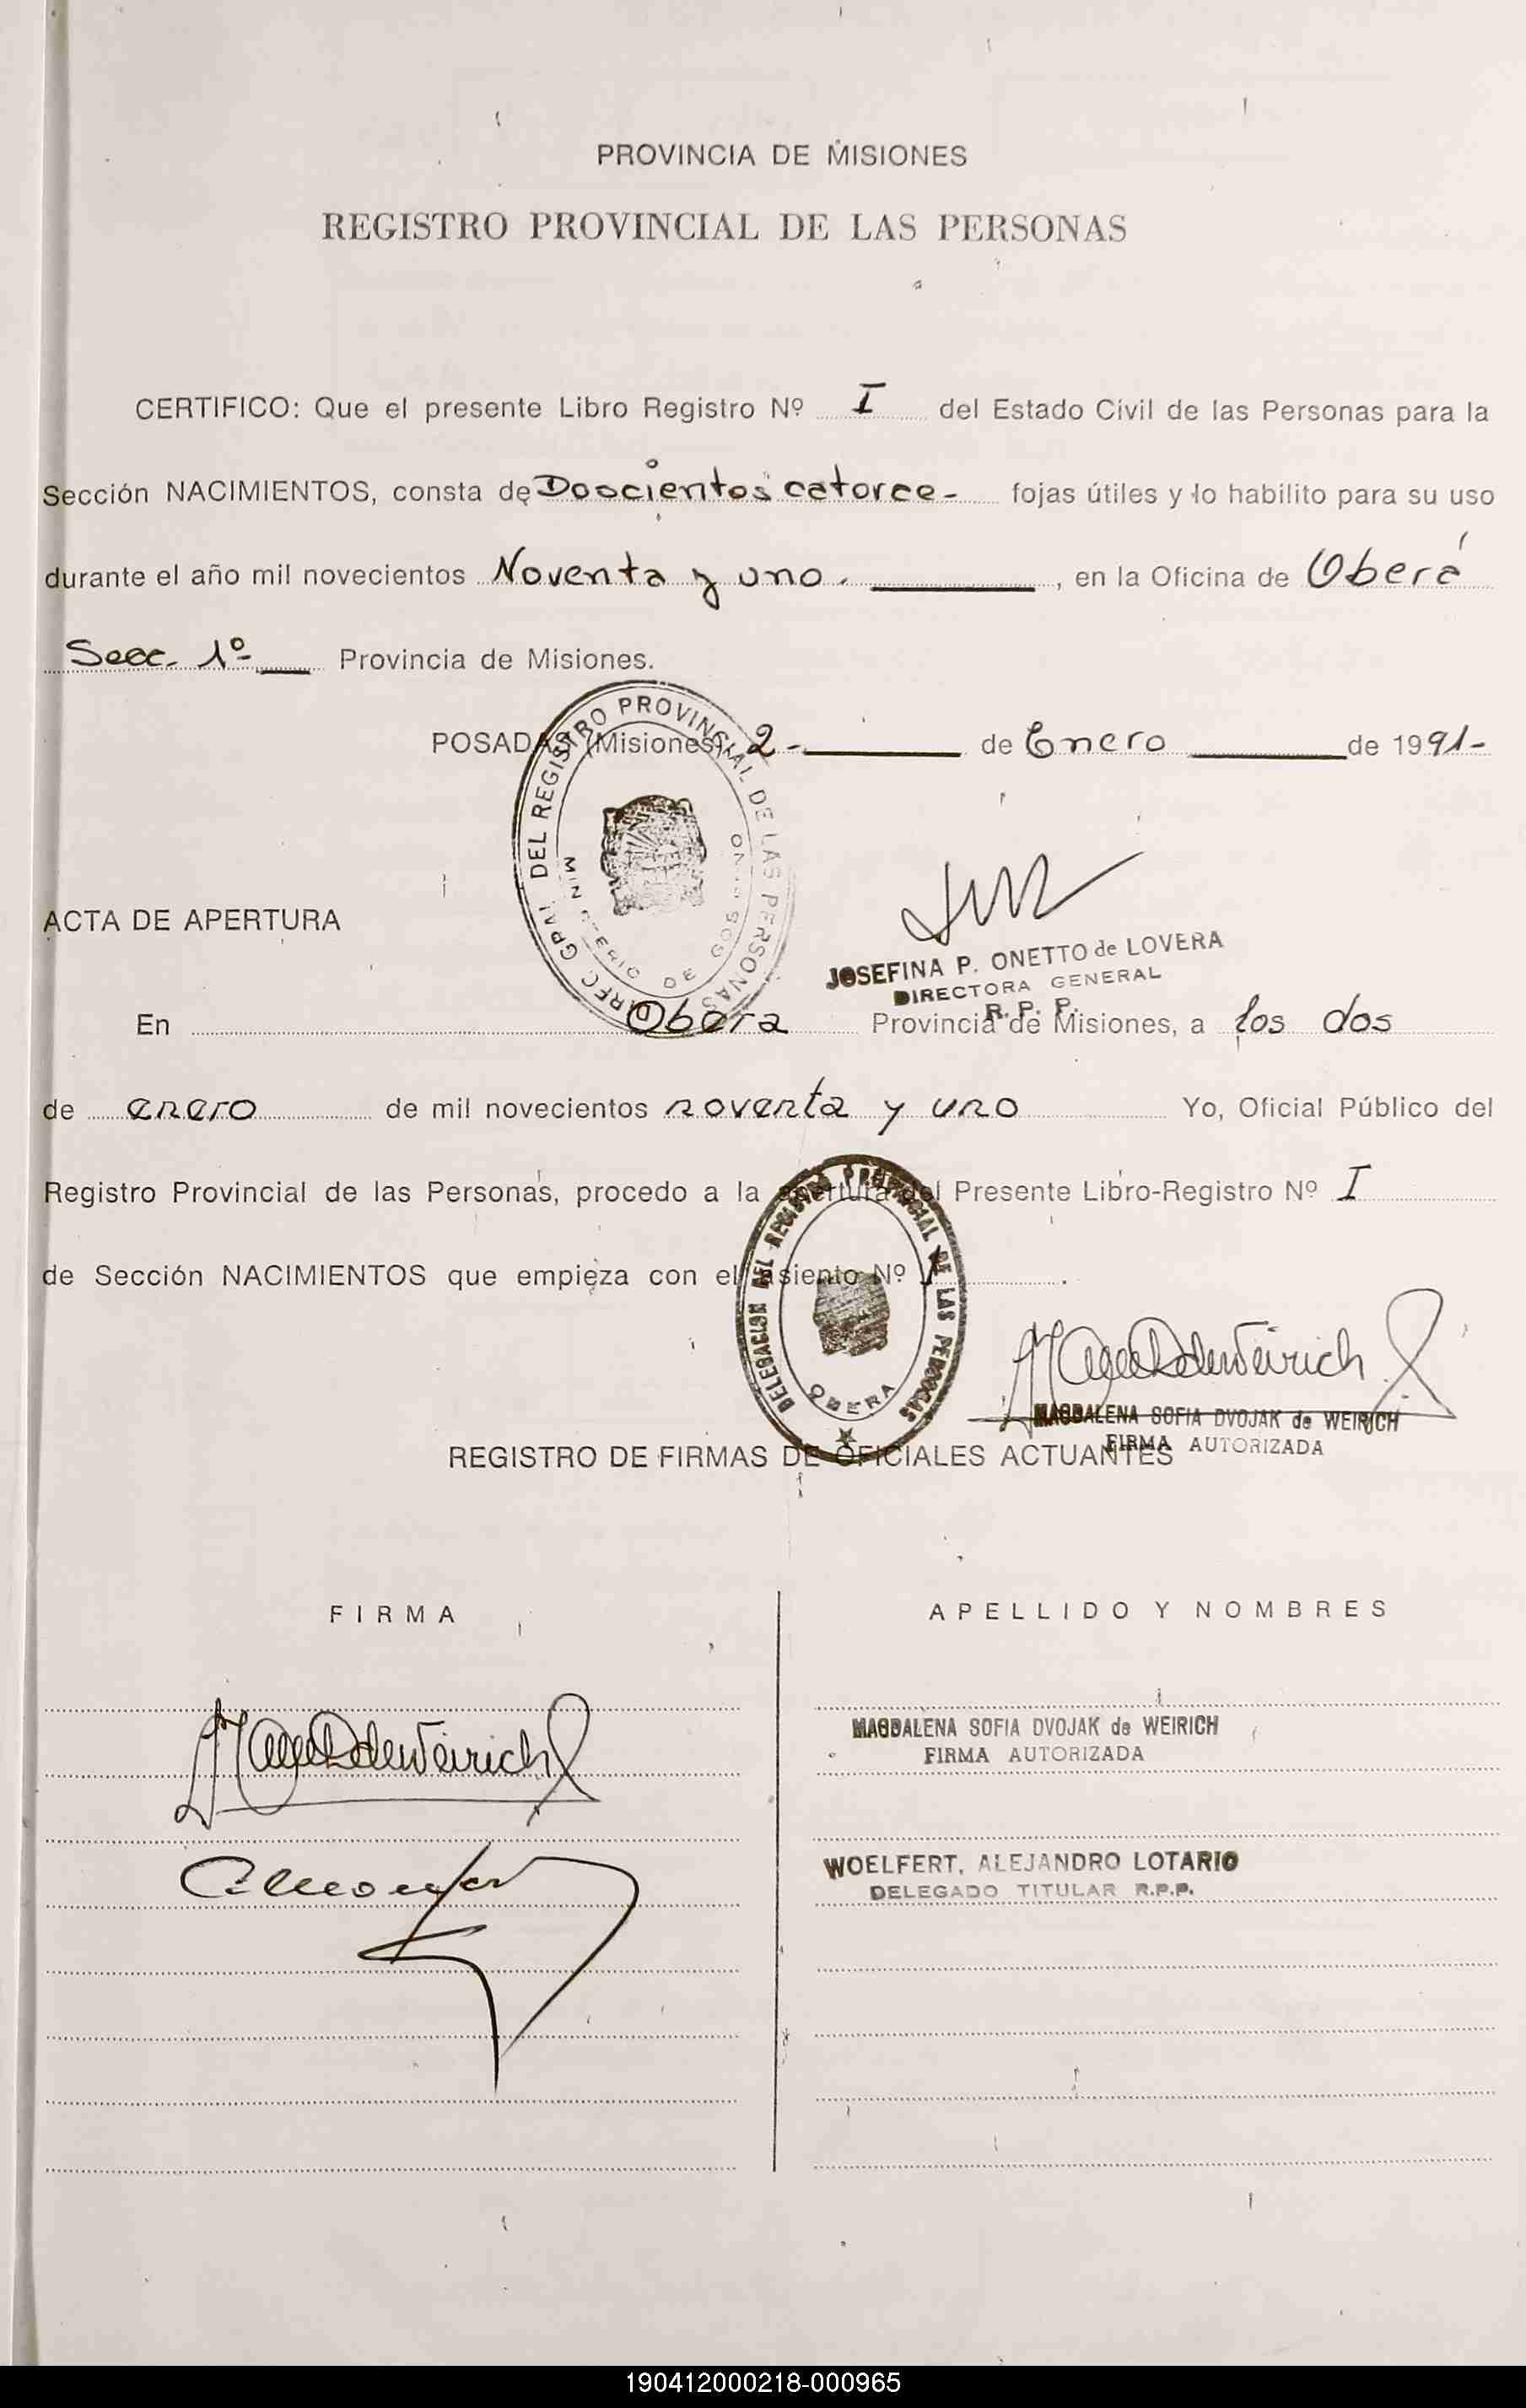 PROVINCIA DE MISIONES
REGISTRO PROVINCIAL DE LAS PERSONAS
CERTIFICO: Que el presente Libro Registro Nº I del Estado Civil de las Personas para la
Sección NACIMIENTOS, consta de Doscientos catorce- fojas útiles y lo habilito para su uso
durante el año mil novecientos Noventa y uno. , en la Oficina de Oberá
Secc. 1º Provincia de Misiones.
POSADAS (Misiones), 2- de Enero de 1991-
DIREC. GRAL. DEL REGISTRO PROVINCIAL DE LAS PERSONAS
MINISTERIO DE GOBIERNO
ACTA DE APERTURA
JOSEFINA P. ONETTO de LOVERA
DIRECTORA GENERAL
R. P. P.
En Obera Provincia de Misiones, a los dos
de enero de mil novecientos noventa y uno Yo, Oficial Público del
Registro Provincial de las Personas, procedo a la apertura del Presente Libro-Registro Nº I
de Sección NACIMIENTOS que empieza con el asiento Nº .
DELEGACION DEL REGISTRO PROVINCIAL DE LAS PERSONAS
OBERA
MAGDALENA SOFIA DVOJAK de WEIRICH
FIRMA AUTORIZADA
REGISTRO DE FIRMAS DE OFICIALES ACTUANTES
FIRMA APELLIDO Y NOMBRES
MAGDALENA SOFIA DVOJAK de WEIRICH
FIRMA AUTORIZADA
WOELFERT, ALEJANDRO LOTARIO
DELEGADO TITULAR R.P.P.
190412000218-000965